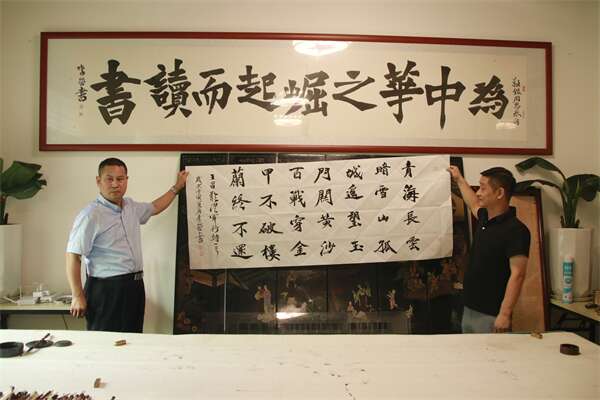 為中華之崛起而讀書
青海長雲
暗雪山孤
城遙望玉
門關黃沙
百戰穿金
甲不破樓
蘭終不還
王昌齡從軍行詩一首